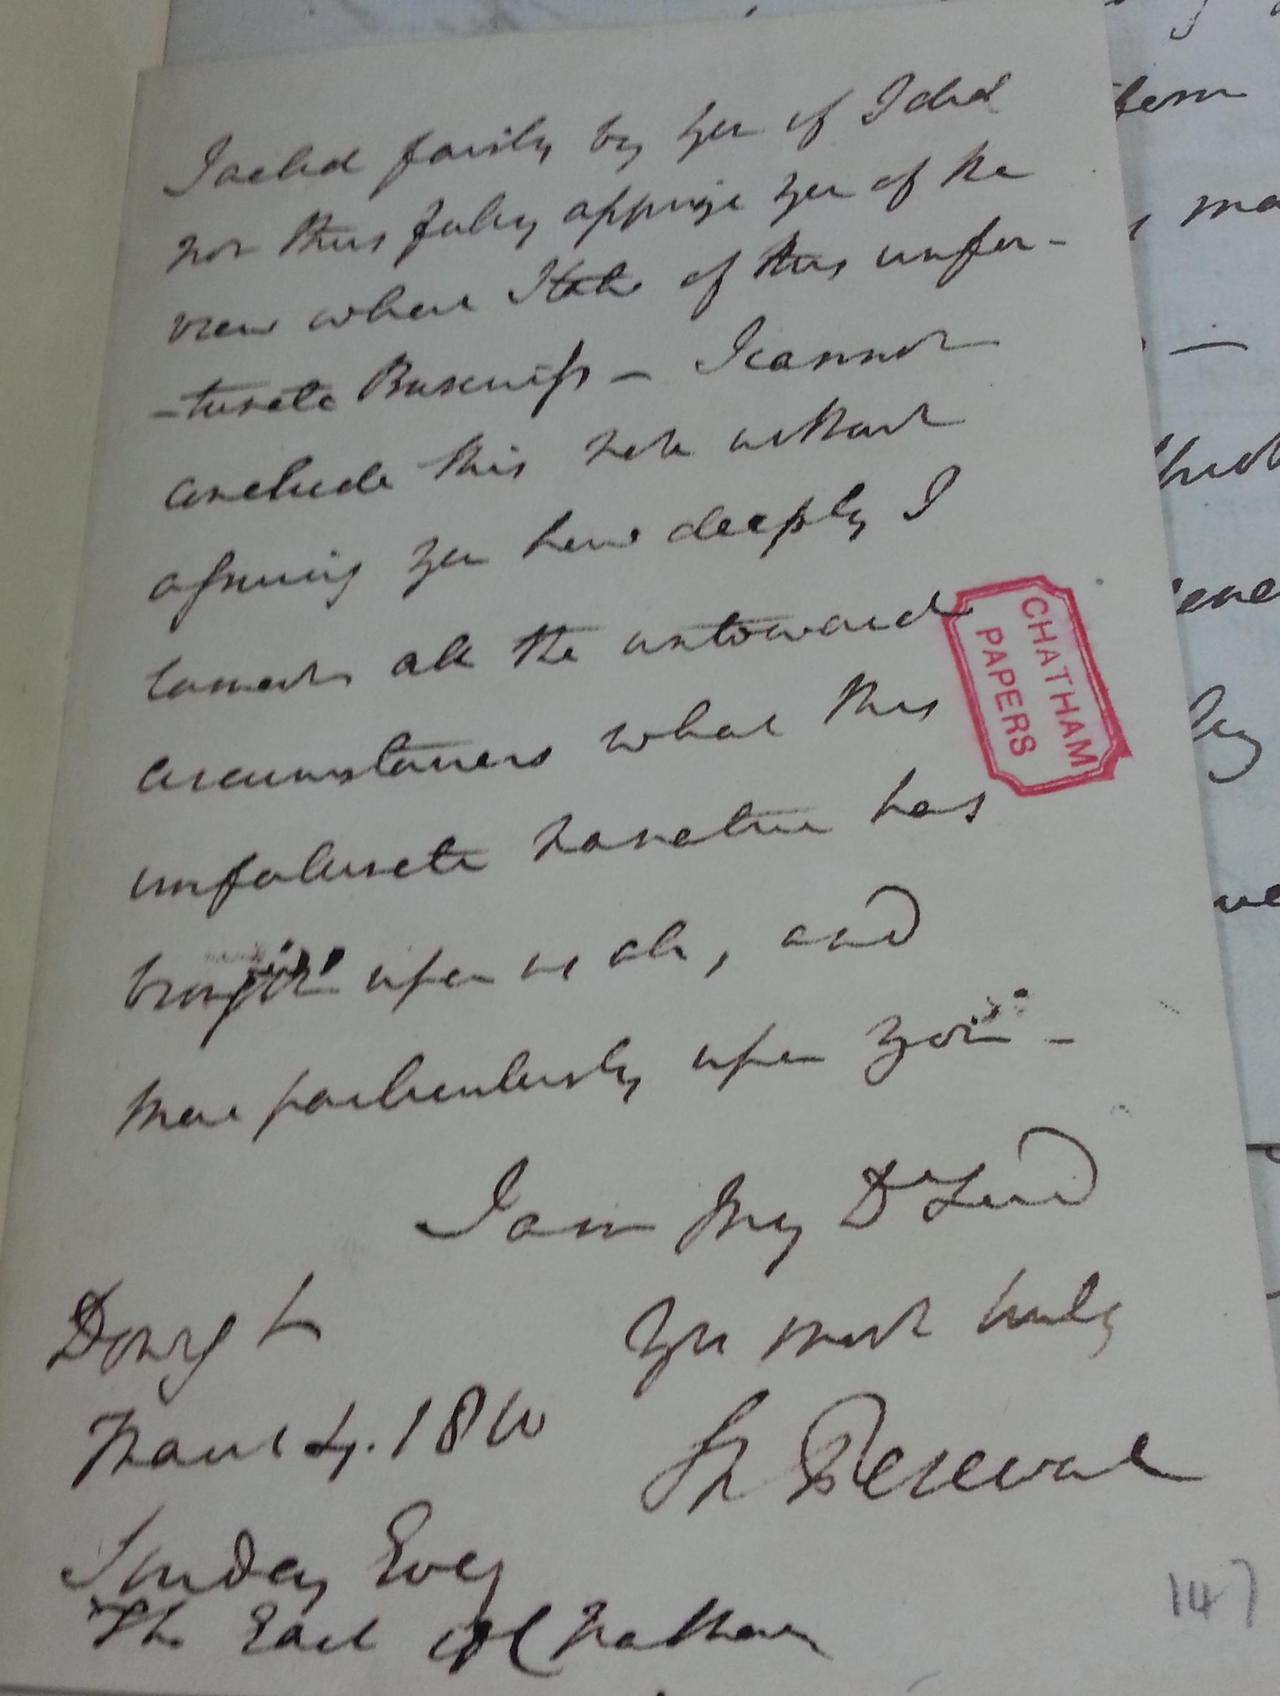 I acted fairly by you if I did
not thus fully apprize you of the
view whole State of this unfor-
-tunate Business – I cannot
conclude this note without
assuring you how deeply I
lament all the untoward
circumstances what this
unfortunate narrative has
brought upon us all, and
more particularly upon you –
I am My Dr Lord
Yrs most truly
Sp Perceval
Downg St
March 4. 1810
Sunday Eveg
The Earl of Chatham
CHATHAM
PAPERS
147